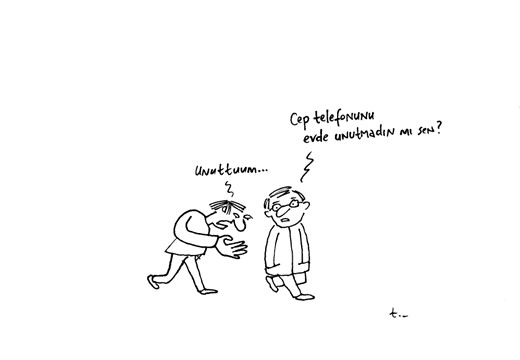 Cep telefonunu
evde unutmadın mı sen?
unuttuum...
t._